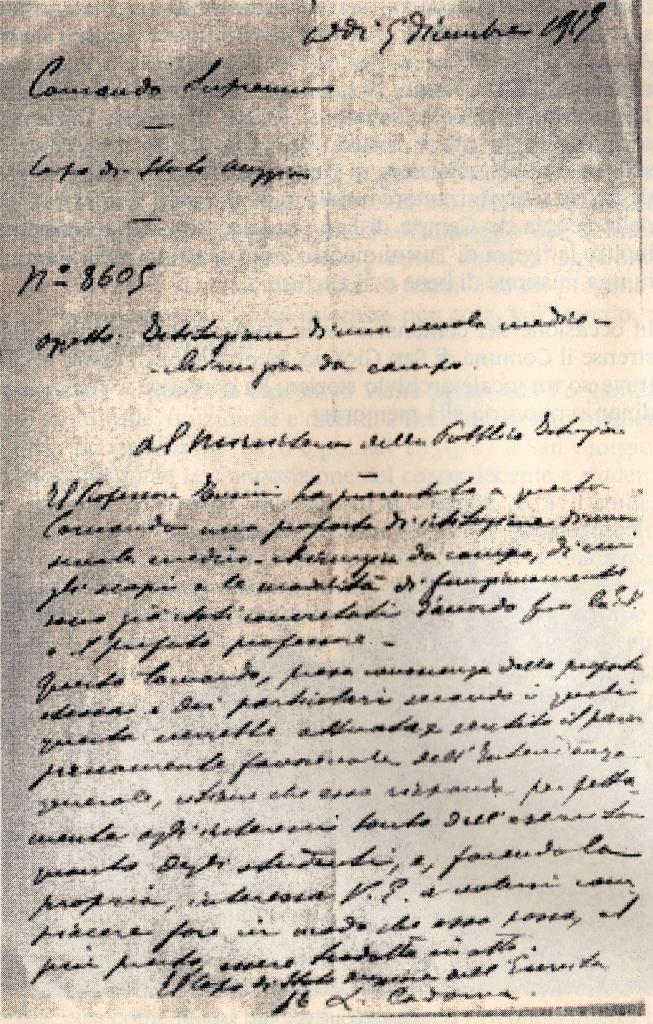 addi 5 dicembre 191
Comando Supremo
Capo di Stato Maggiore
N° 8605
oggetto: Istituzione di una scuola medico-
chirurgica da campo.
al Ministero della Pubblica Istruzione
Il Professore ha presentato a questo
Comando una proposta di istituzione di una
scuola medico-chirurgica da campo, di cui
gli scopi e le modalità di funzionamento
sono già stati concretati d'accordo fra la
e il prefato professore.
Questo Comando, presa conoscenza della proposta
stessa e dei particolari secondo i quali
questa verrebbe attuata e sentito il parere
pienamente favorevole dell'Intendenza
generale, ritiene che essa risponda perfetta
mente agli interessi tanto dell'esercito
quanto degli studenti, e, facendola
propria, interessa V. E. a volersi com
piacere fare in modo che essa possa, al
più presto, essere tradotta in atto.
Il Capo di Stato Maggiore dell'Esercito
L. Cadorna.